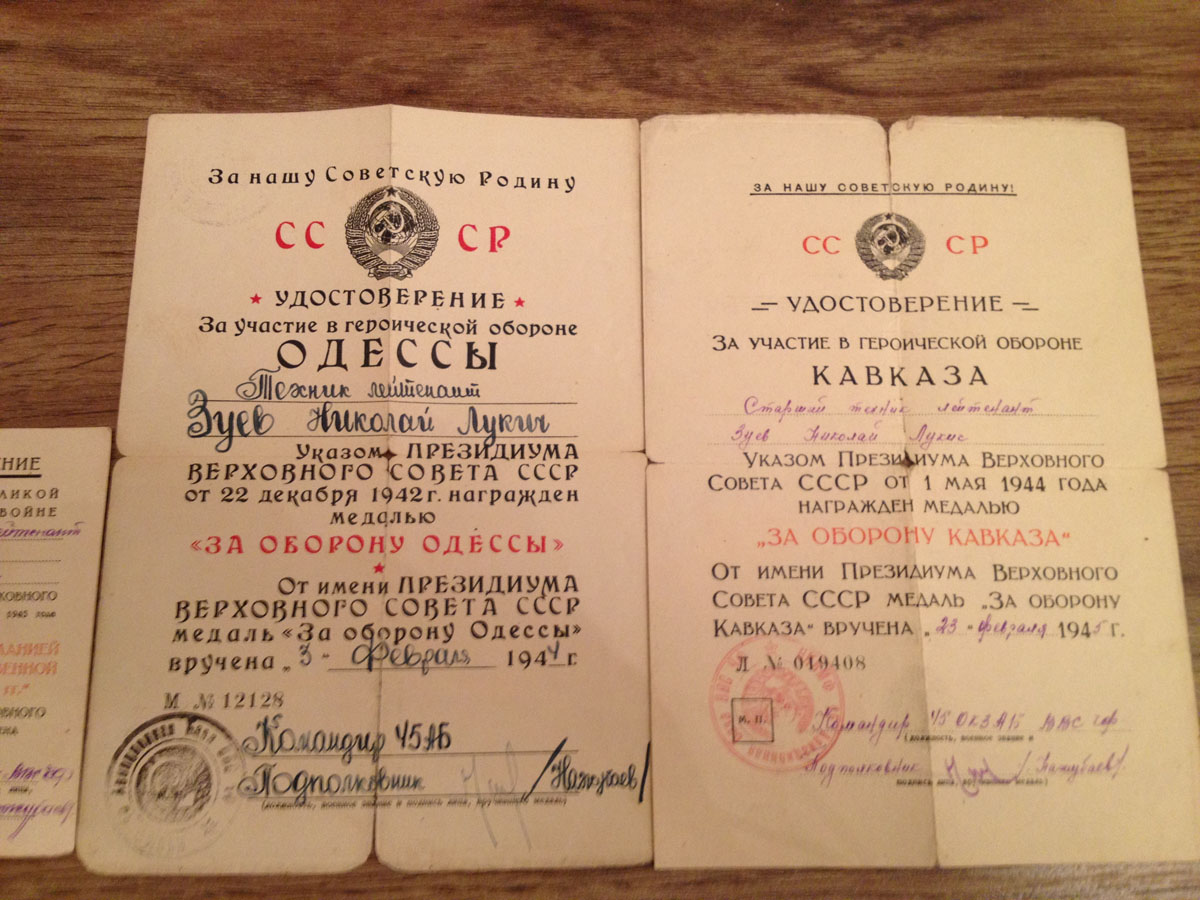 За нашу Советскую Родину
СС СР
УДОСТОВЕРЕНИЕ
За участие в героической обороне
ОДЕССЫ
Техник лейтенант
Зуев Николай Лукич
Указом ПРЕЗИДИУМА
ВЕРХОВНОГО СОВЕТА СССР
от 22 декабря 1942 г. награжден
медалью
«ЗА ОБОРОНУ ОДЕССЫ»
От имени ПРЕЗИДИУМА
ВЕРХОВНОГО СОВЕТА СССР
медаль «За оборону Одессы»
вручена „3- Февраля 1944 г.
М № 12128
Командир 45АБ
Подполковник
(должность, военное звание и подпись лица, вручившего медаль)
ЗА НАШУ СОВЕТСКУЮ РОДИНУ!
СС СР
— УДОСТОВЕРЕНИЕ —
ЗА УЧАСТИЕ В ГЕРОИЧЕСКОЙ ОБОРОНЕ
КАВКАЗА
Старший техник лейтенант
Зуев Николай Лукич
УКАЗОМ ПРЕЗИДИУМА ВЕРХОВНОГО
СОВЕТА СССР ОТ 1 МАЯ 1944 ГОДА
НАГРАЖДЕН МЕДАЛЬЮ
„ЗА ОБОРОНУ КАВКАЗА“
ОТ ИМЕНИ ПРЕЗИДИУМА ВЕРХОВНОГО
СОВЕТА СССР МЕДАЛЬ „ЗА ОБОРОНУ
КАВКАЗА“ ВРУЧЕНА „23 - февраля 1945 г.
Л № 019408
М. П.
Командир 45 ОКЗАБ ВВС чф
(должность, военное звание и
Подполковник
подпись лица, вручившего медаль)
НИЕ
ЛИКОЙ
ВОЙНЕ
лейтенант
ХОВНОГО
1945 года
МАНИЕЙ
ВЕННОЙ
гг.“
ОВНОГО